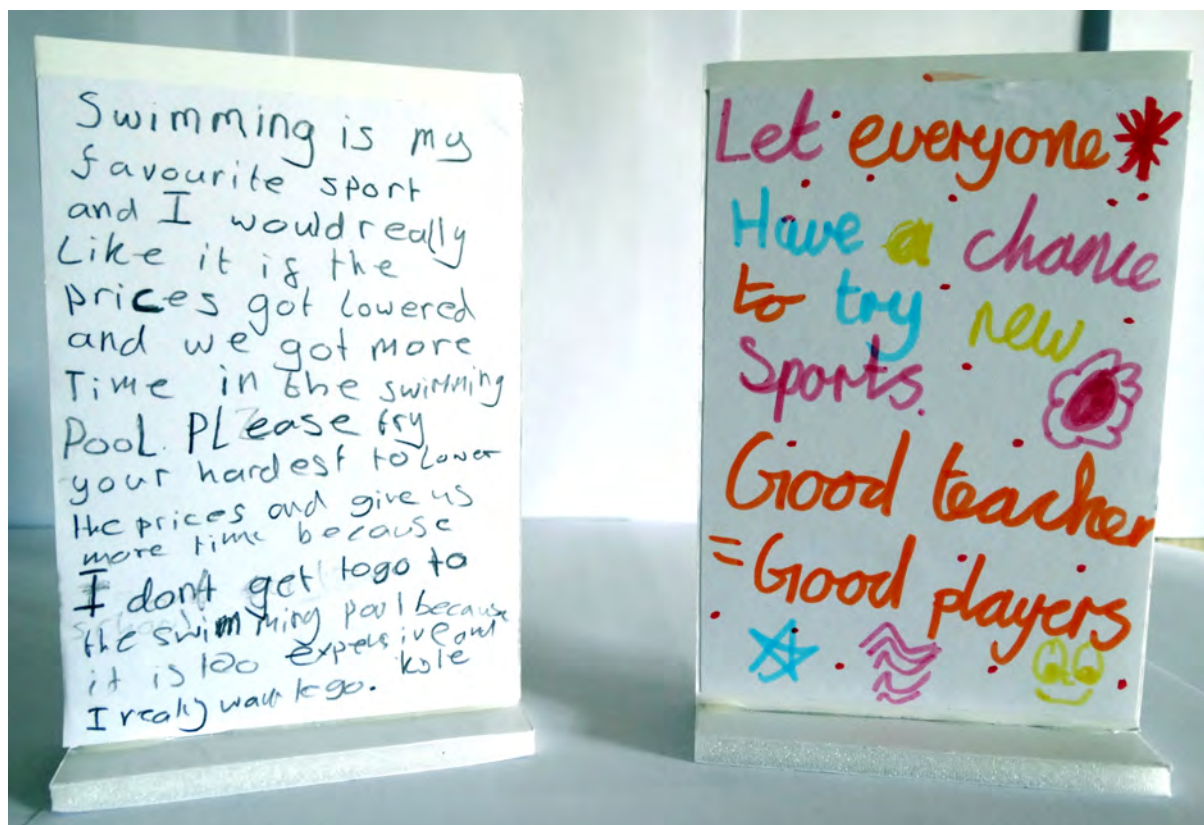 Swimming is my
favourite sport
and I would really
Like it if the
prices got lowered
and we got more
Time in the swimming
Pool. PLease try
your hardest to Lower
the prices and give us
more time because
I don't get to go to
the swimming pool because
it is too expensive and
I really want to go. kyle
Let everyone
Have a chance
to try new
Sports.
Good teacher
= Good players